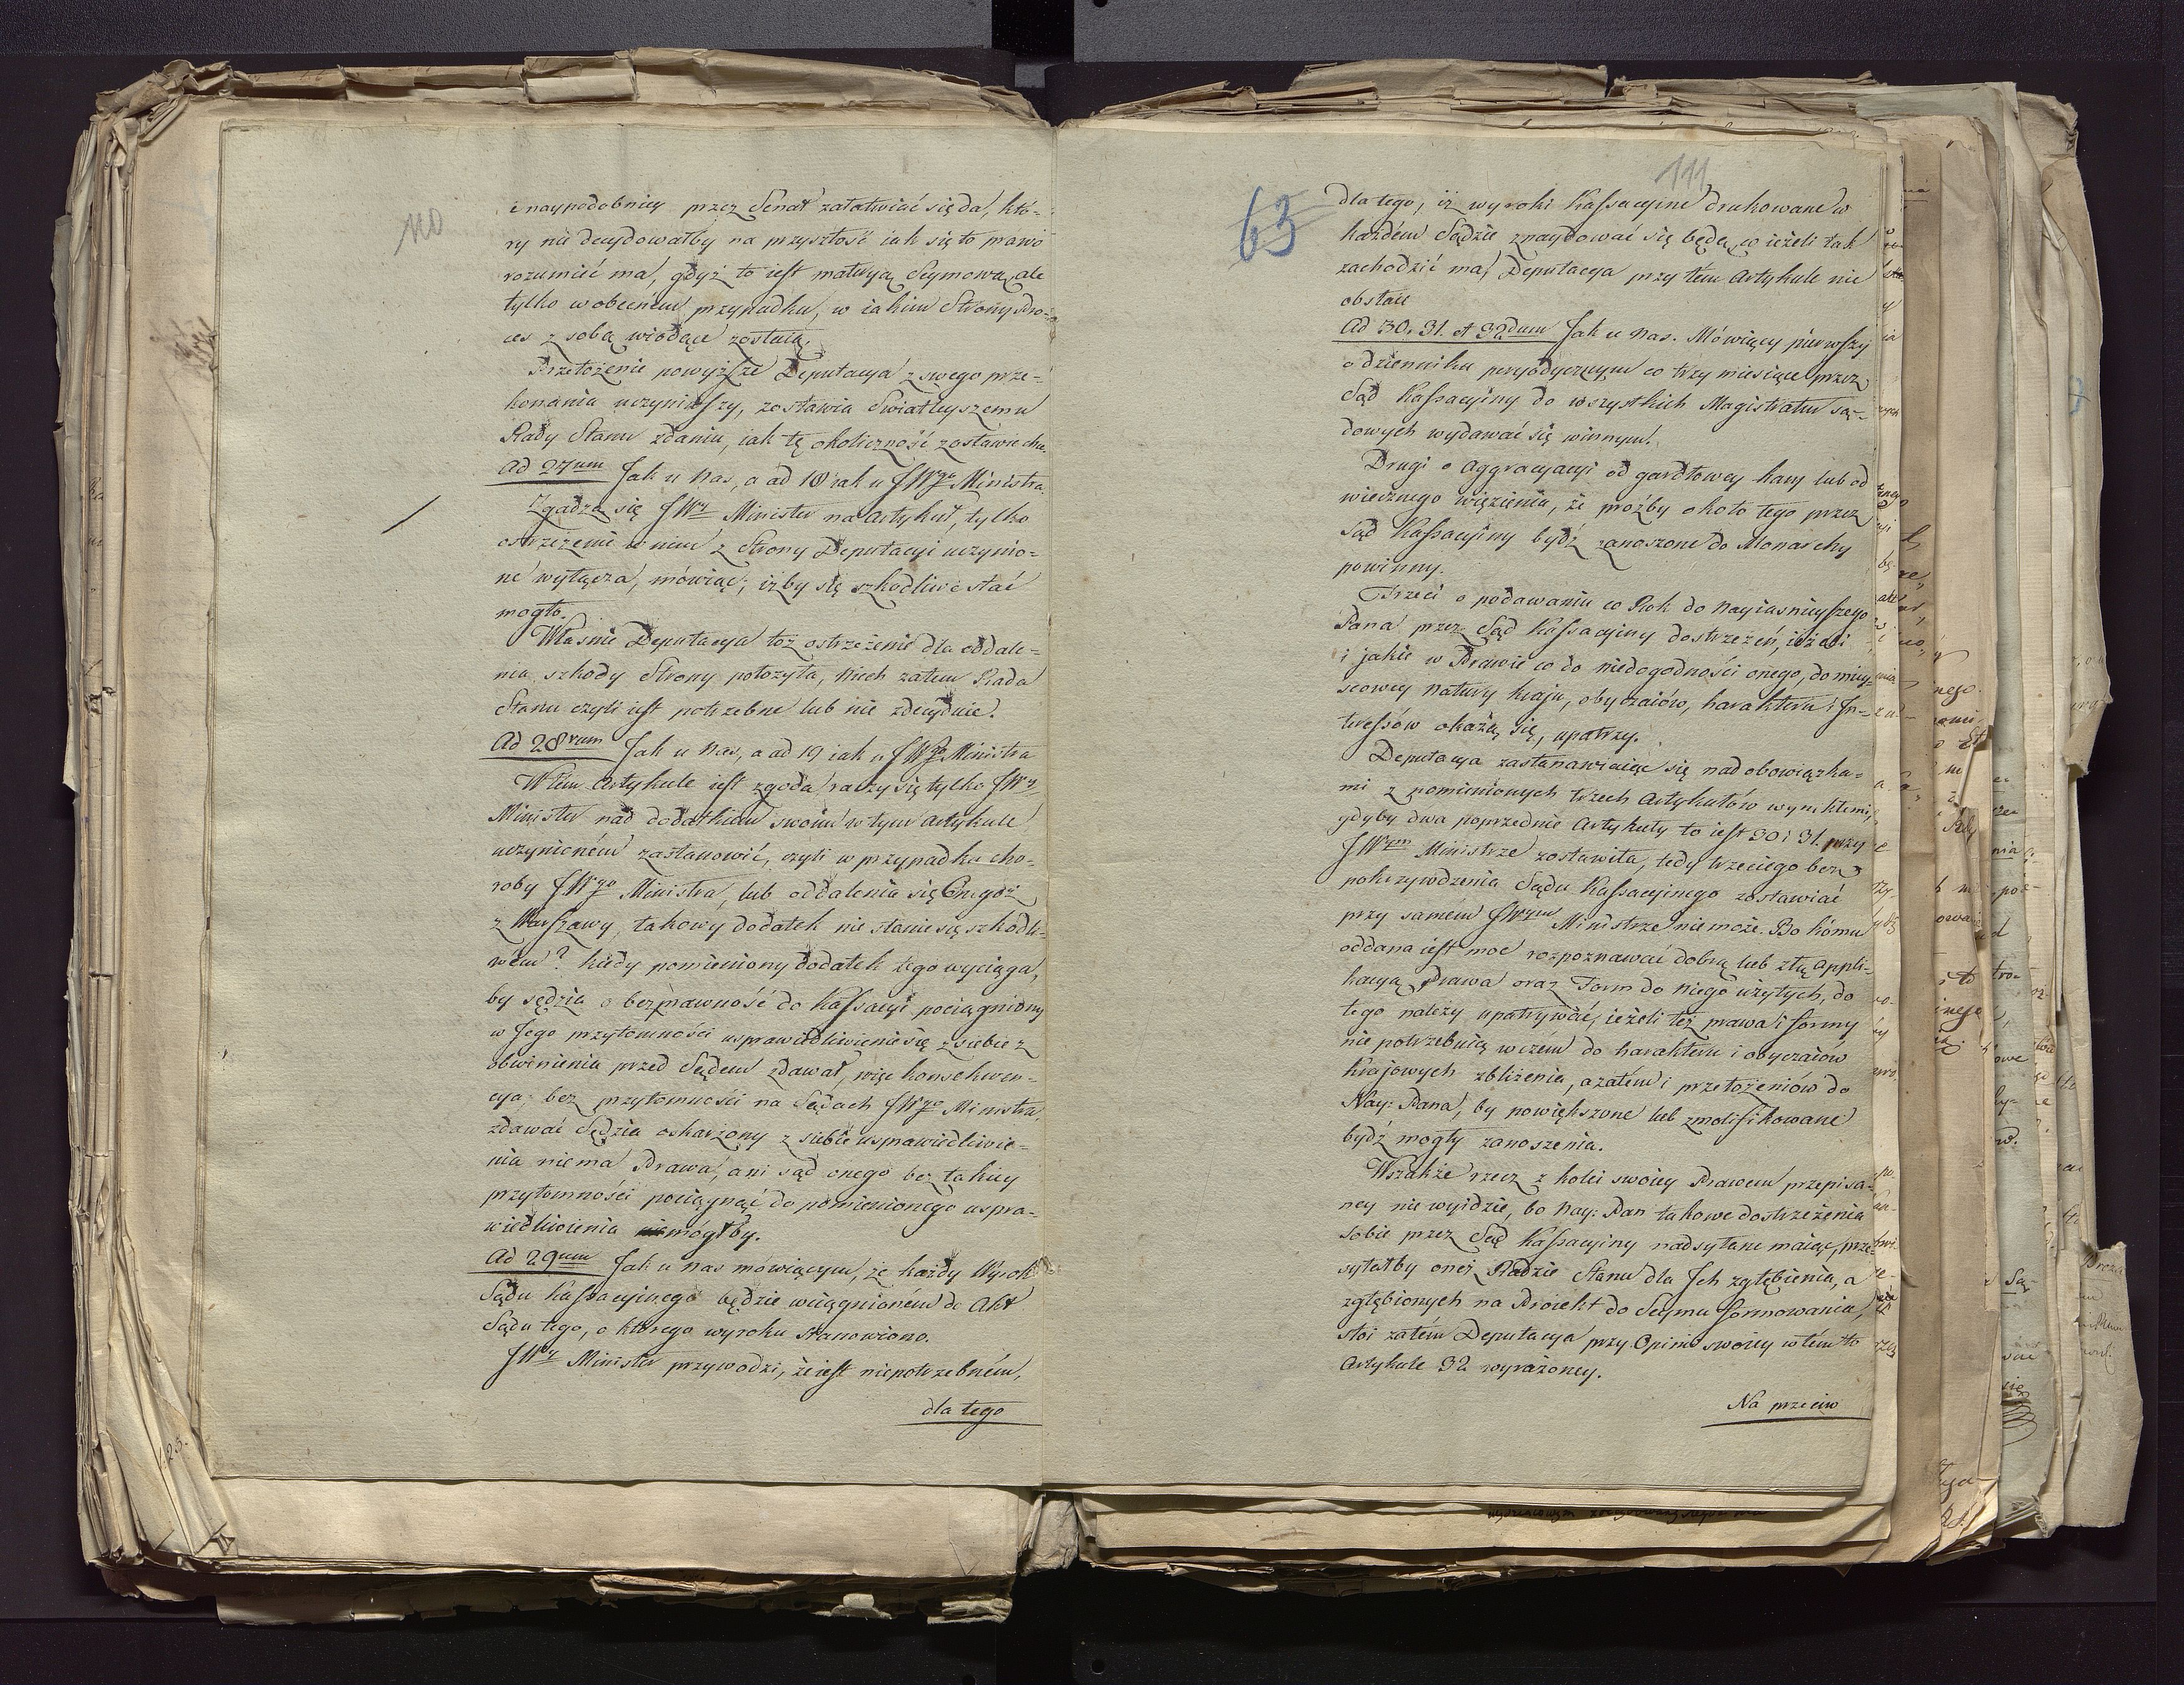 110
i naypodobniey przez Senat załatwiać się da, któ-
ry nie decydowałby na przyszłość iak się to prawo
rozumieć ma, gdyż to iest materyą Seymową, ale
tylko w obecnem przypadku, w iakim Strony Pro-
ces z sobą wiodące zostaią.
Przełożenie powyższe Deputacya z swego prze-
konania uczyniwszy, zostawia Swiatłeyszemu
Rady Stanu zdaniu, iak tę okoliczność zostawić chce.
Ad 27um Jak u nas, a ad 18 iak u JWgo Ministra.
Zgadza się JWy Minister na Artykuł, tylko
ostrzeżenie w nim z Strony Deputacyi uczynio-
ne wyłącza, mówiąc; iżby się szkodliwe stać
mogło.
Właśnie Deputacya toż ostrzeżenie dla oddale-
nia szkody Strony położyła, niech zatem Rada
Stanu czyli iest potrzebne lub nie zdecyduie.
Ad 28vum Jak u nas, a ad 19 iak u JWgo Ministra
W tem Artykule iest zgoda, raczy się tylko JWy
Minister nad dodatkiem swoim w tym Artykule
uczynioném zastanowić, czyli w przypadku cho-
roby JWgo Ministra, lub oddalenia się Onegoż
z Warszawy, takowy dodatek nie stanie się szkodli-
wém? kiedy pomieniony dodatek tego wyciąga,
by sędzia o bezprawność do Kassacyi pociągniony
w Jego przytomności usprawiedliwienie się z siebie z
obwinienia przed Sądem zdawał, więc konsekwen-
cya; bez przytomności na Sądach JWgo Ministra
zdawać Sędzia oskarżony z siebie usprawiedliwie-
nia niema Prawa, ani sąd onego bez takiey
przytomności pociągnąć do pomienionego uspra-
wiedliwienia mógłby.
Ad 29um Jak u nas mówiącym, że każdy Wyrok
Sądu Kassacyinego będzie wciągnioném do Akt
Sądu tego, o którego wyroku stanowiono.
JWy Minister przywodzi, że iest niepotrzebném,
dla tego
111
63
dla tego, iż wyroki Kassacyine drukowane w
każdém Sądzie znaydować się będą, ieżeli tak
zachodzić ma, Deputacya przy tém Artykule nie
obstaie
Ad 30. 31. et 32dum Jak u nas. Mówiący piérwszy
o dzienniku peryodycznym co trzy miesiące przez
Sąd Kassacyiny do wszystkich Magistratur są-
dowych wydawać się winnym.
Drugi o Aggracyacyi od gardłowey kary lub od
wiecznego więzienia, że proźby około tego przez
Sąd Kassacyiny bydź zanoszone do Monarchy
powinny.
Trzeci o podawaniu co Rok do Nayiasnieyszego
Pana przez Sąd Kassacyiny dostrzeżeń, ieżeli
i jakie w Prawie co do niedogodności onego, do miey-
scowey natury kraju, obyczaiów, harakteru i In-
teressów okażą się, upatrzy.
Deputacya zastanawiaiąc się nad obowiązka-
mi z pomienionych trzech Artykułów wynikłemi,
gdyby dwa poprzednie Artykuły to iest 30 i 31. przy
JWym Ministrze zostawiła, tedy trzeciego bez
pokrzywdzenia Sądu Kassacyinego zostawiać
przy samém JWym Ministrze niemoże. Bo kómu
oddana iest moc rozpoznawać dobrą lub złą appli-
kacyą Prawa oraz Form do niego użytych, do
tego należy upatrywać, ieżeli też prawa i formy
nie potrzebuią w czém do harakteru i obyczaiów
Krajowych zbliżenia, a zatém i przełożeniów do
Nay: Pana, by powiększone lub zmodifikowane
bydź mogły zanoszenia.
Wszakże rzecz z kolei swoiey Prawem przepisa-
ney nie wyidzie, bo Nay: Pan takowe dostrzeżenia
sobie przez Sąd Kassacyiny nadsyłane maiąc, prze-
syłałby oneż Radzie Stanu dla Jch zgłębienia, a
zgłębionych na Proiekt do Seymu formowania,
stoi zatém Deputacya przy Opinii swoiey w tém to
Artykule 32 wyrażoney.
Na przeciw